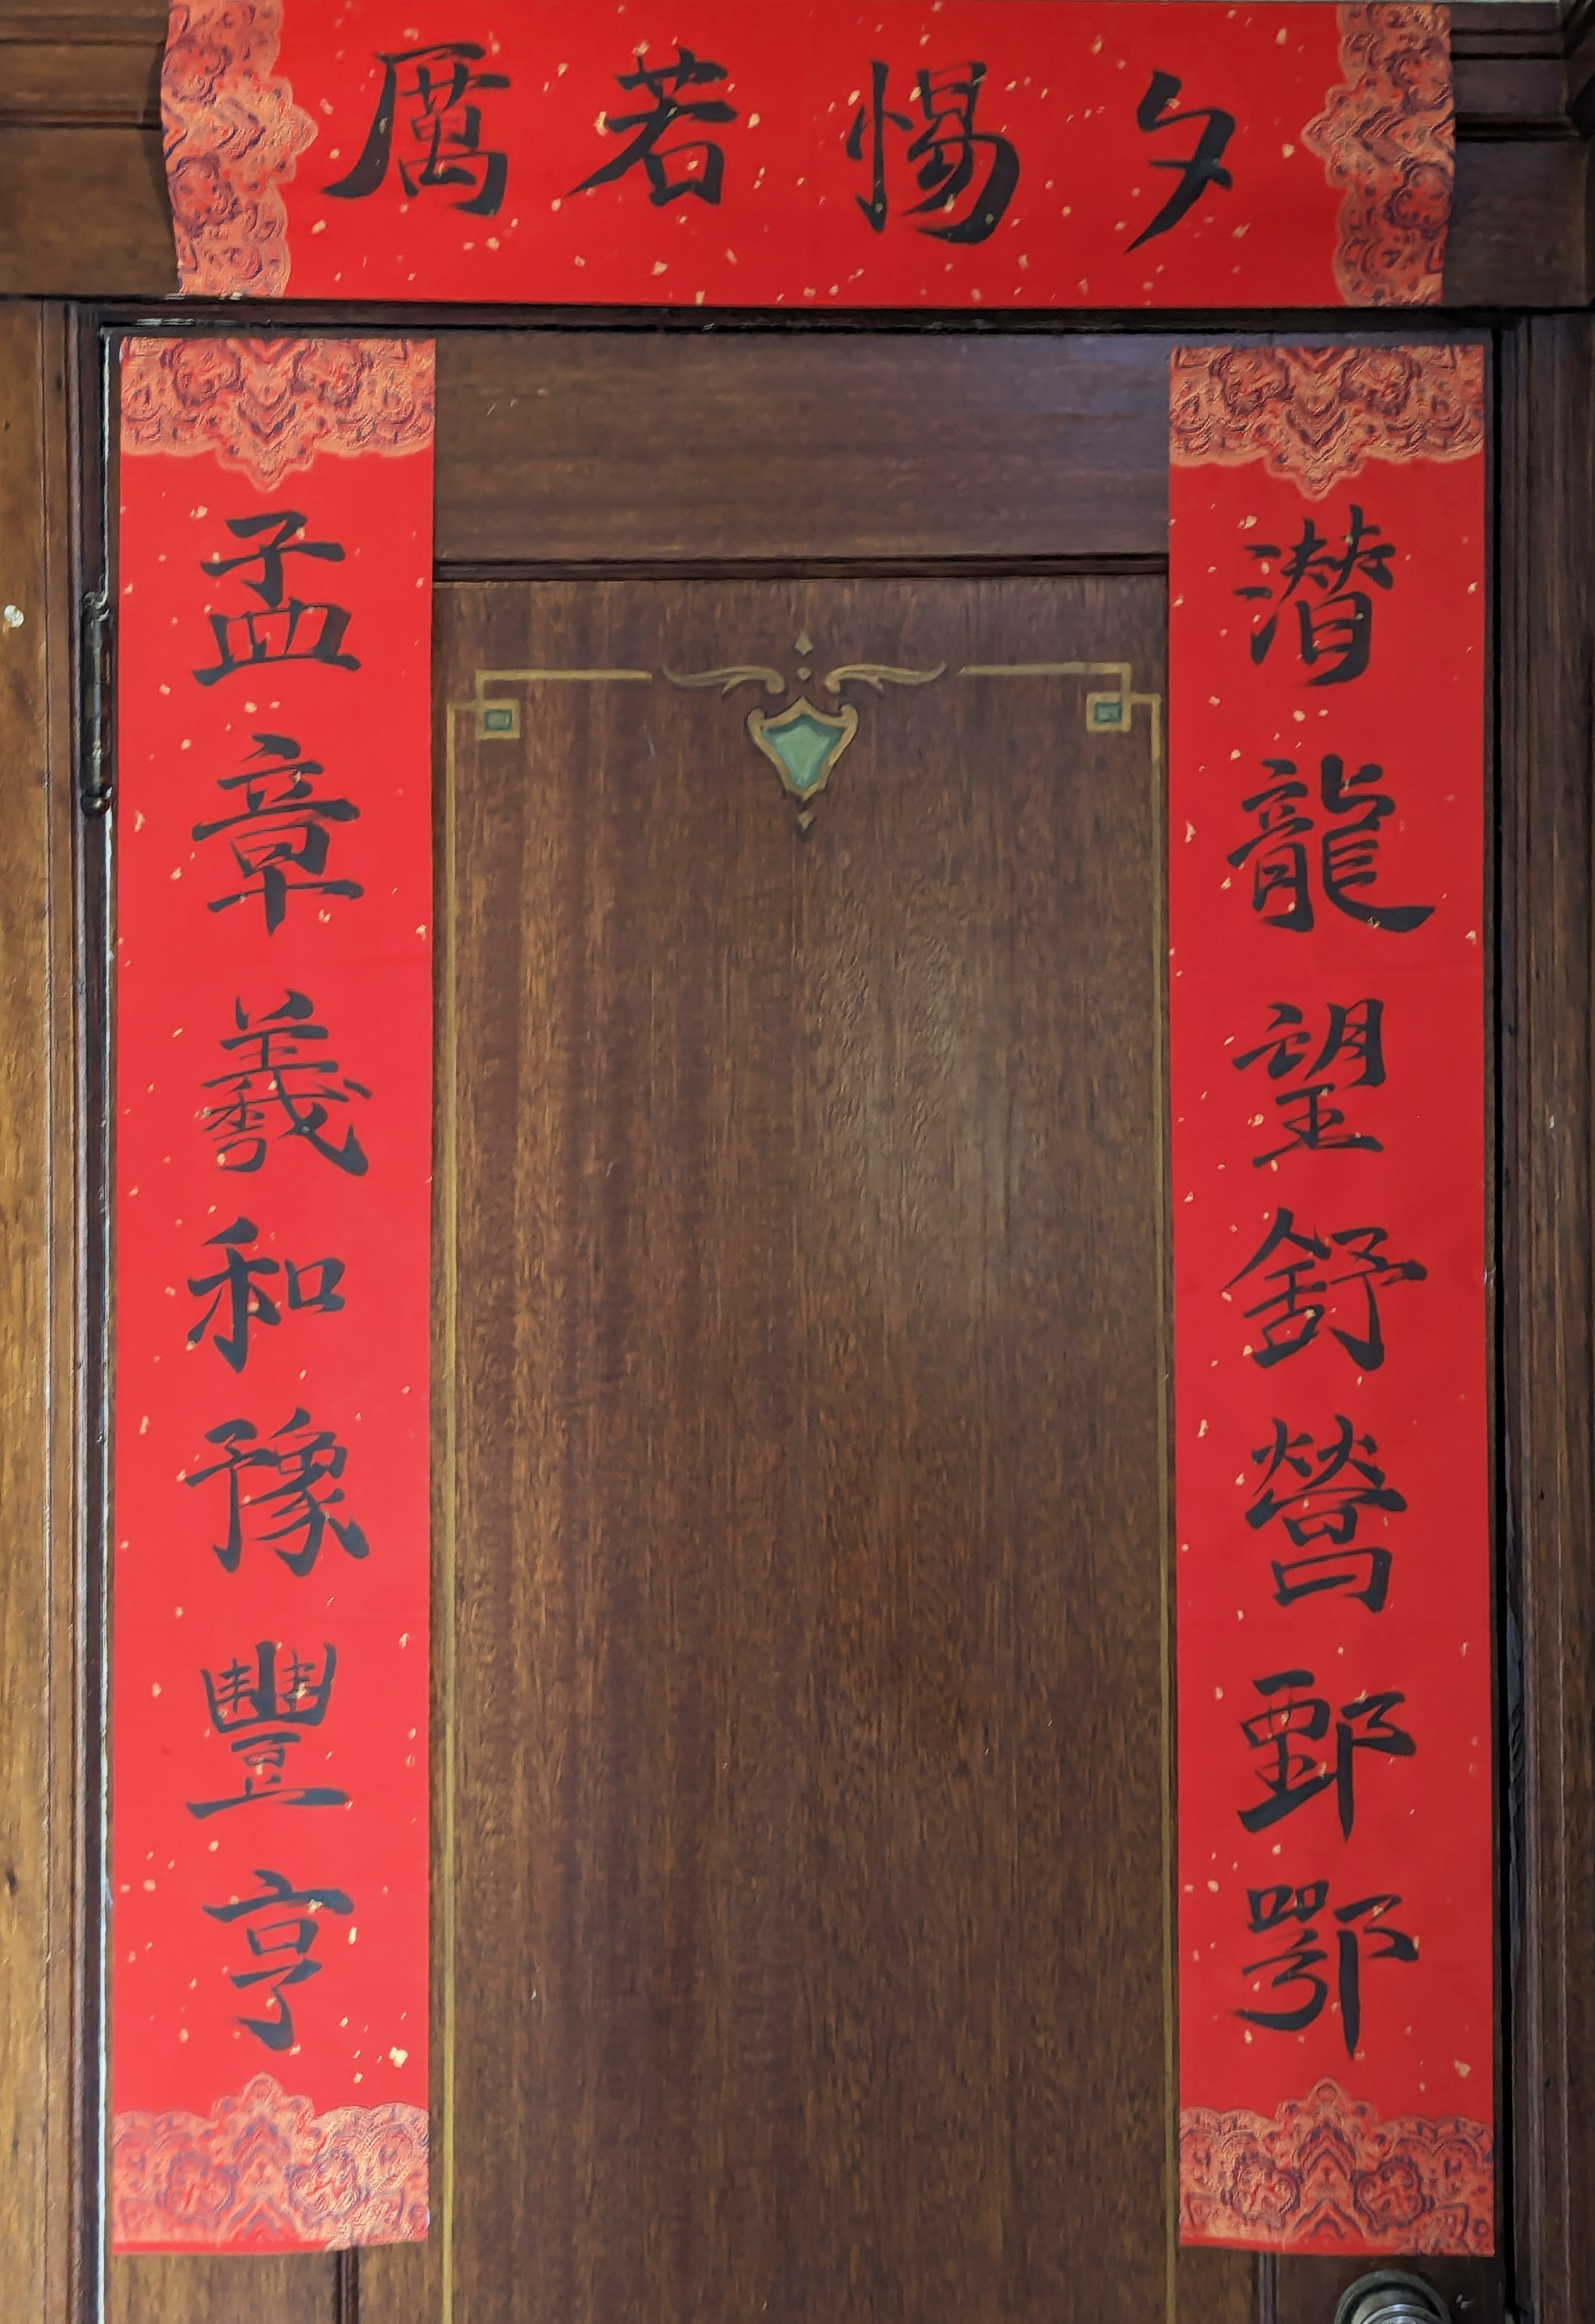 夕惕若厲
潛龍望舒營鄄鄂
孟章羲和豫豐亨